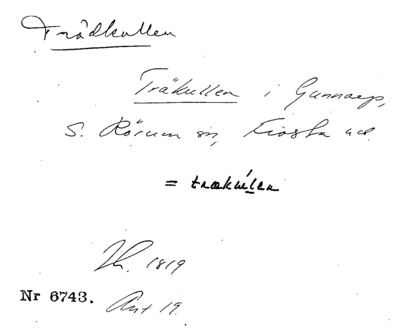 Trädkullen
Träkullen i Gunnarp,
S. Rörum sn, Frosta hd.
= trækúlen
Jk. 1819
Nr 6743. Ant 19.